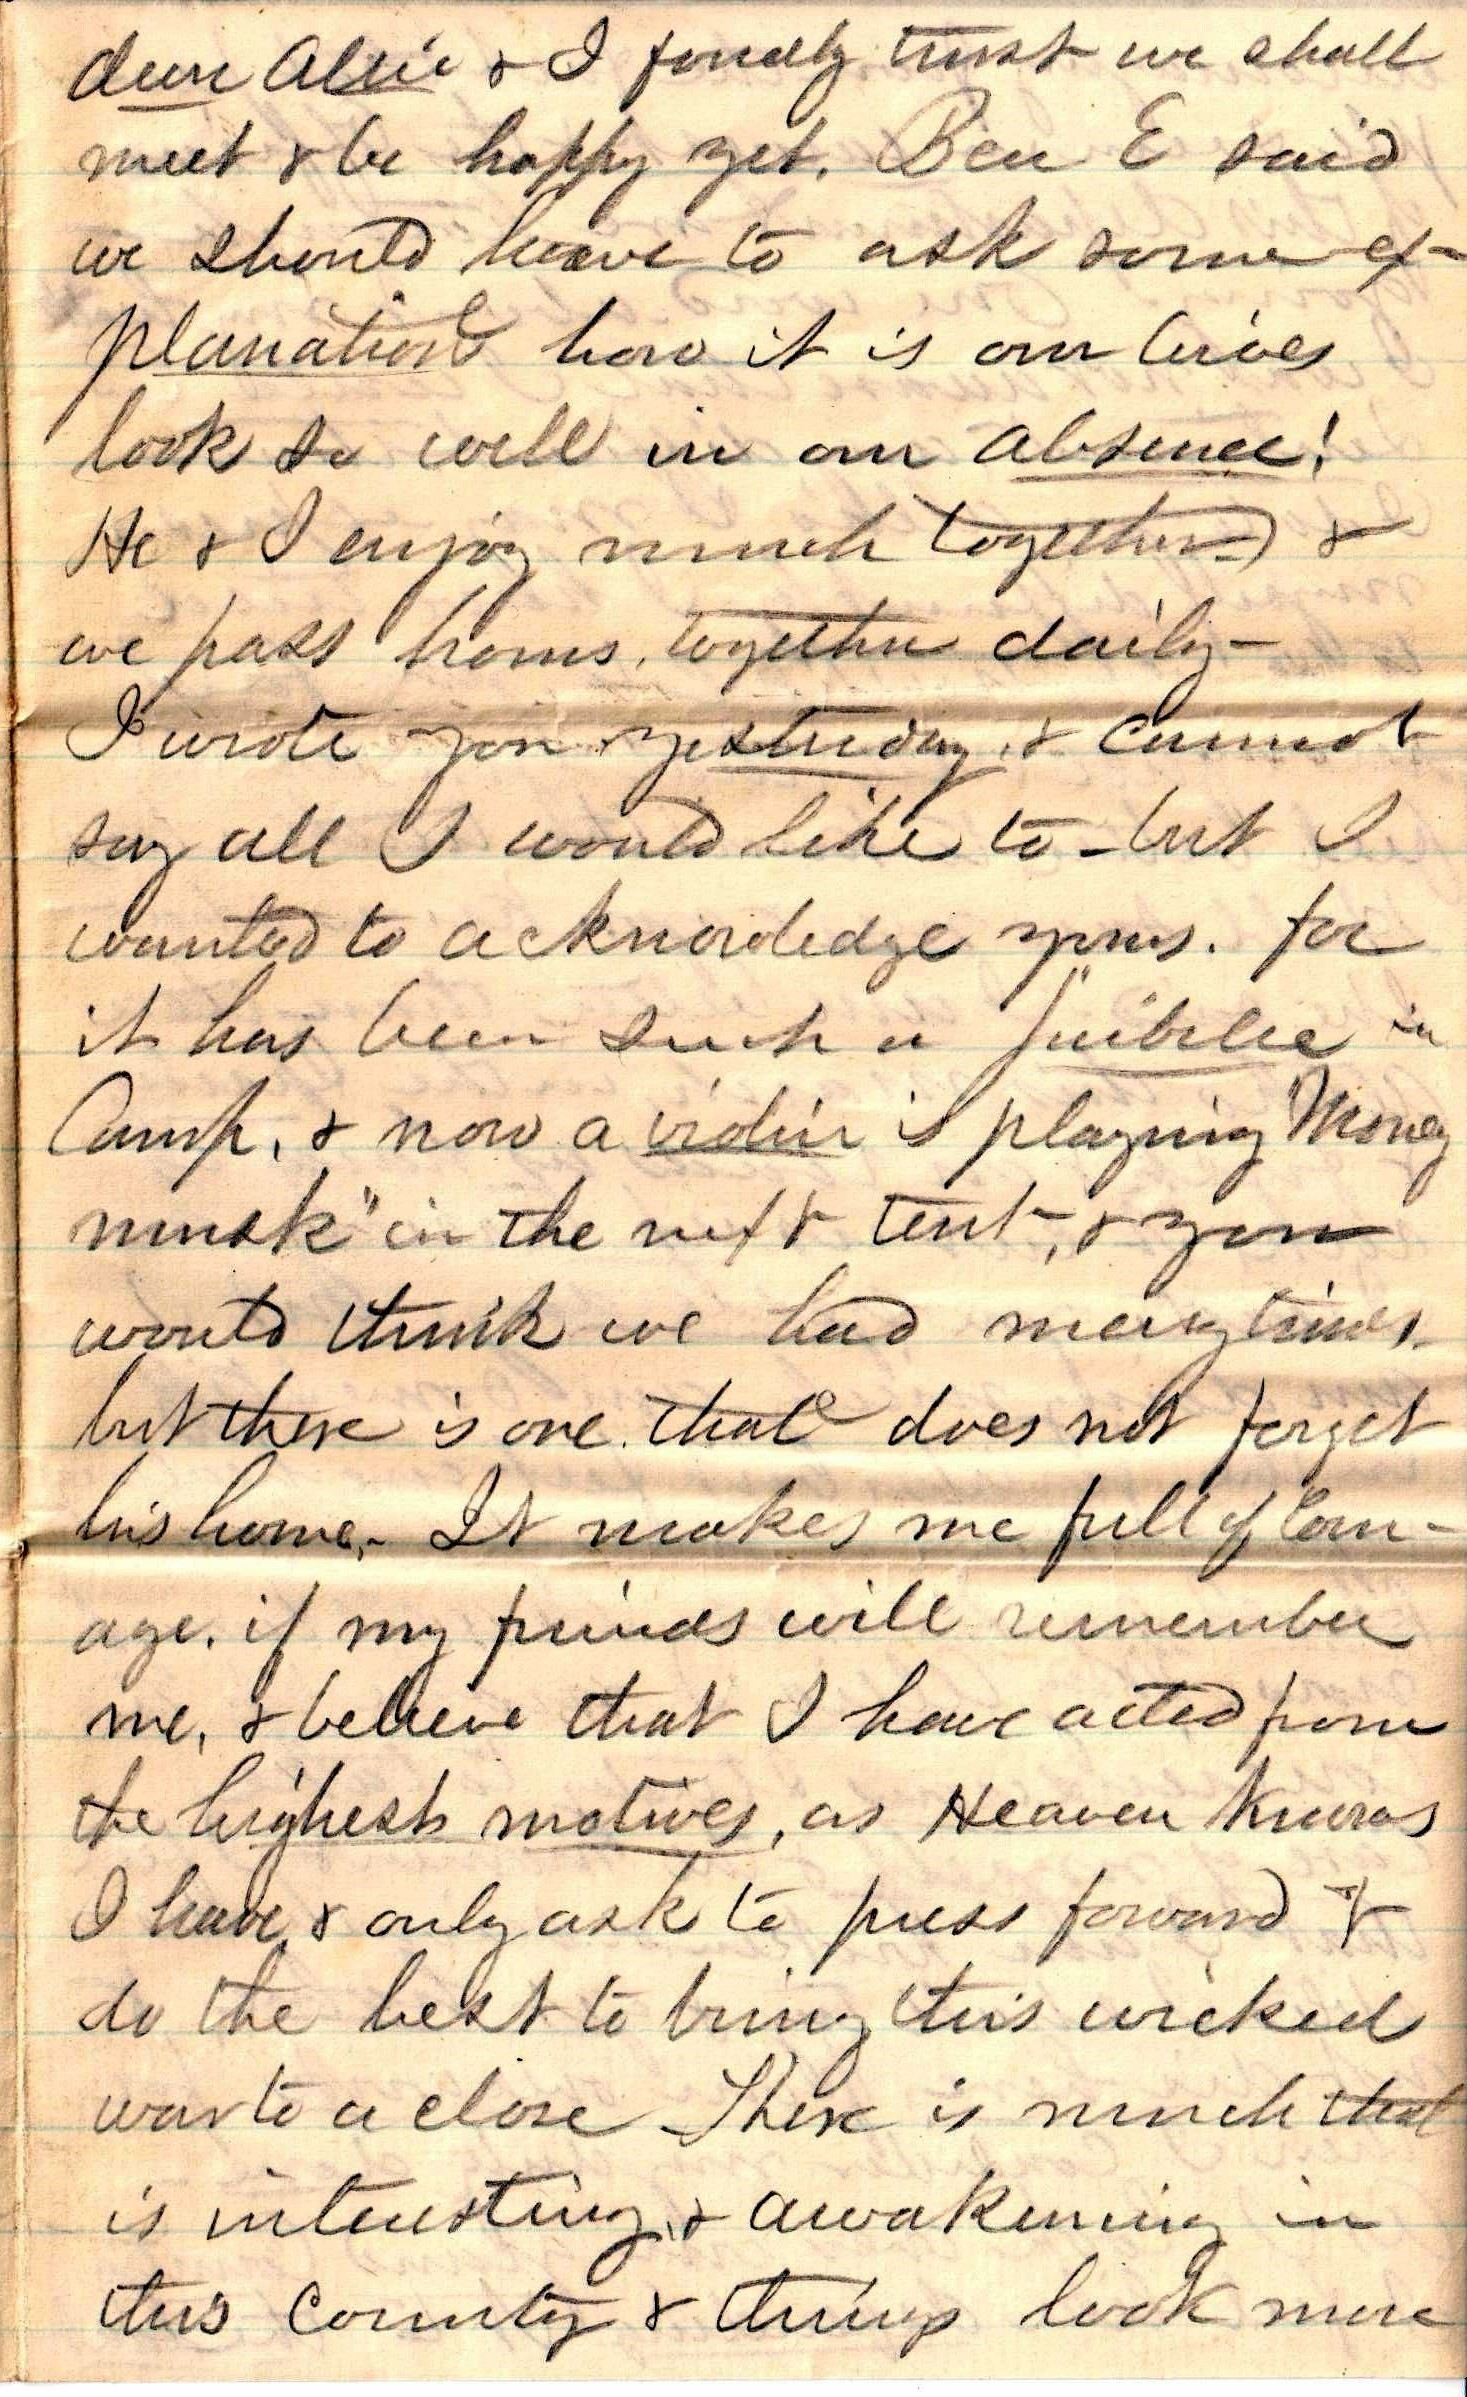 dear Allie & I fondly trust we shall
meet & be happy yet. Ben E said
we should have to ask some ex-
planation how it is our wives
look so well in our absence!
He & I enjoy much together &
we pass hours, together daily-
I wrote you yesterday, & cannot
say all I would like to - but I
wanted to acknowledge yours. for
it has been such a "juibilee in
Camp, & now a violin is playing "Money
musk" in the next tent, & you
would think we had merry times-
but there is one that does not forget
his home,- It makes me full of Cour-
age. if my friends will remember
me, & believe that I have acted from
the highest motives, as Heaven knows
I have, & only ask to press forward &
do the best to bring this wicked
war to a close - There is much that
is interesting, & awakening in
this County & things look more